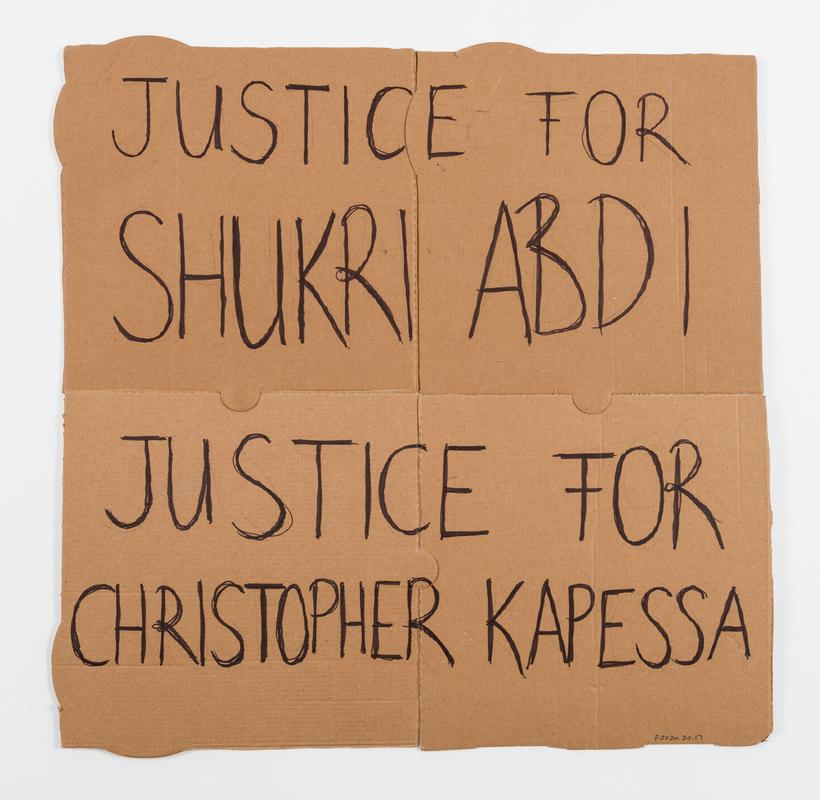 JUSTICE FOR
SHUKRI ABDI
JUSTICE FOR
CHRISTOPHER KAPESSA
F2020.20.17